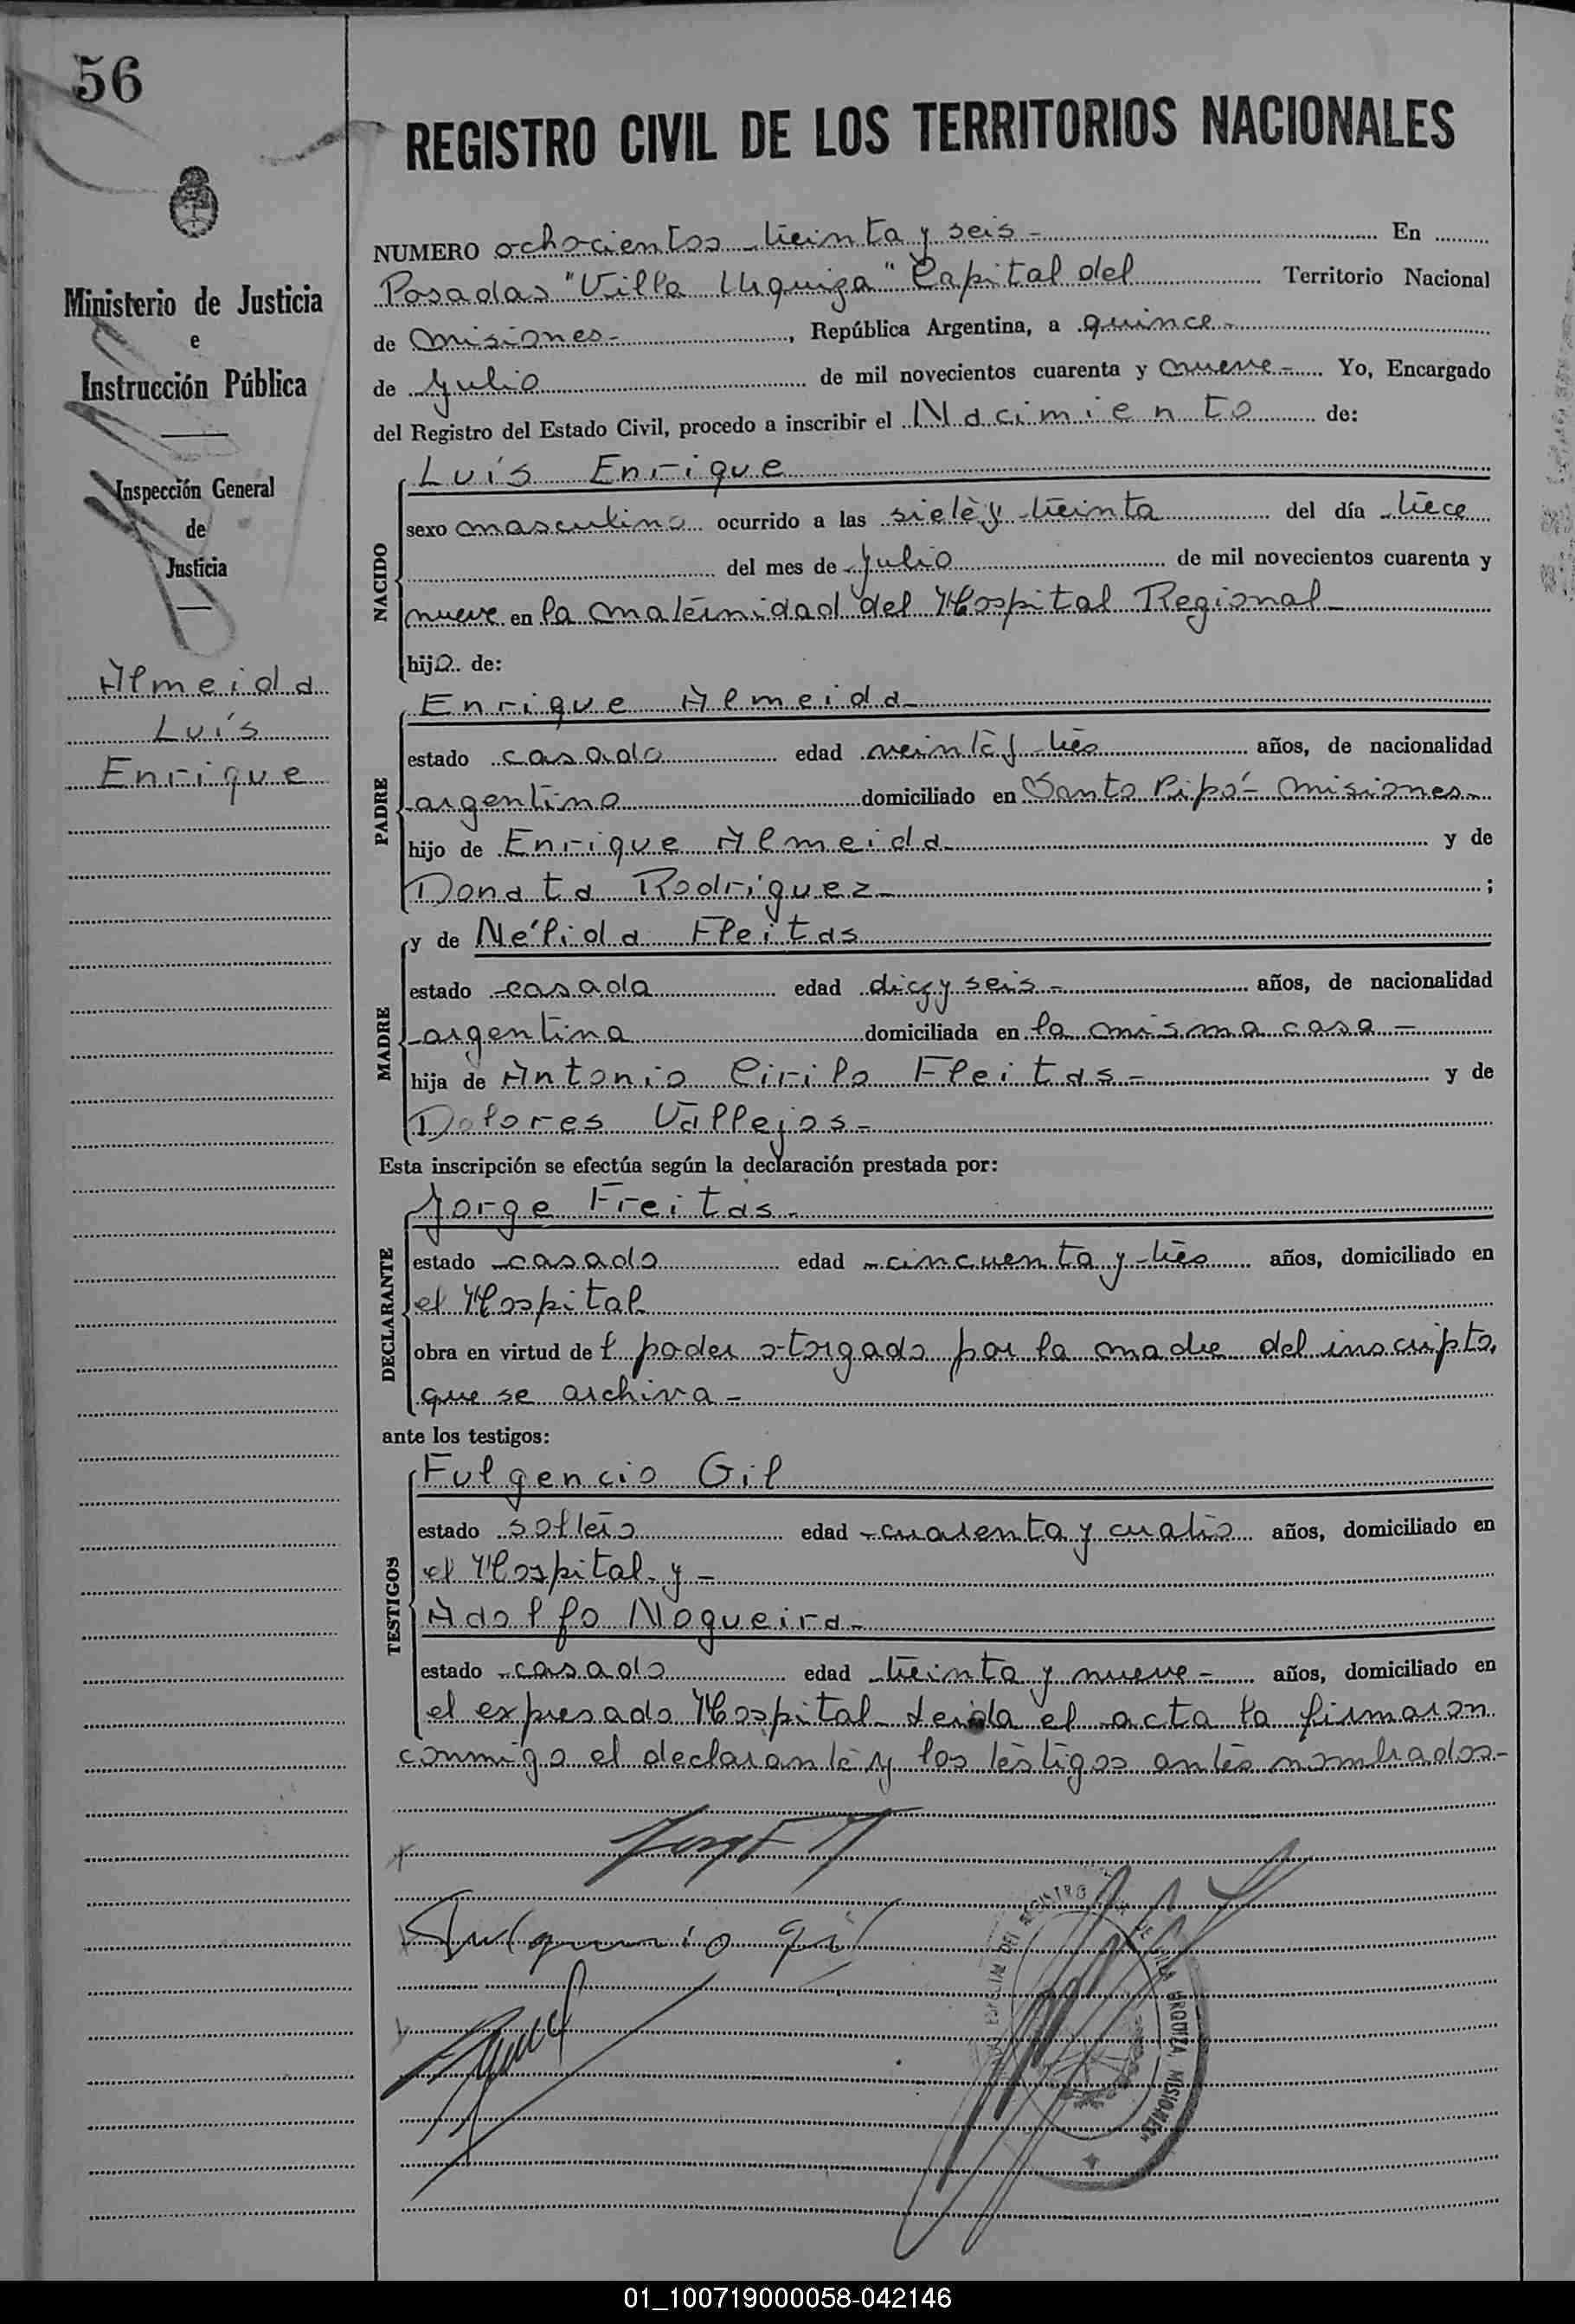 56
REGISTRO CIVIL DE LOS TERRITORIOS NACIONALES
Ministerio de Justicia
e
Instrucción Pública
Inspección General
de
Justicia
Almeida
Luís
Enrique
NUMERO ochocientos treinta y seis - En
Posadas "Villa Urquiza" Capital del Territorio Nacional
de Misiones - , República Argentina, a quince -
de Julio de mil novecientos cuarenta y nueve - Yo, Encargado
del Registro del Estado Civil, procedo a inscribir el Nacimiento de:
NACIDO
Luís Enrique
sexo masculino ocurrido a las siete y treinta del día trece
del mes de Julio de mil novecientos cuarenta y
nueve en la maternidad del Hospital Regional -
hijo de:
PADRE
Enrique Almeida -
estado casado edad veinte y tres años, de nacionalidad
argentino domiciliado en Santo Pipó - Misiones -
hijo de Enrique Almeida - y de
Donata Rodríguez - ;
MADRE
y de Nélida Fleitas
estado casada edad diez y seis - años, de nacionalidad
argentina domiciliada en la misma casa -
hija de Antonio Cirilo Fleitas - y de
Dolores Vallejos -
Esta inscripción se efectúa según la declaración prestada por:
DECLARANTE
Jorge Freitas -
estado casado edad cincuenta y tres años, domiciliado en
el Hospital
obra en virtud del poder otorgado por la madre del inscripto,
que se archiva -
ante los testigos:
TESTIGOS
Fulgencio Gil
estado soltero edad cuarenta y cuatro años, domiciliado en
el Hospital y -
Adolfo Nogueira -
estado casado edad treinta y nueve - años, domiciliado en
el expresado Hospital - Leida el acta la firmaron
conmigo el declarante y los testigos antes nombrados -
Fulgencio Gil
REGISTRO VILLA URQUIZA, MISIONES
01_100719000058-042146